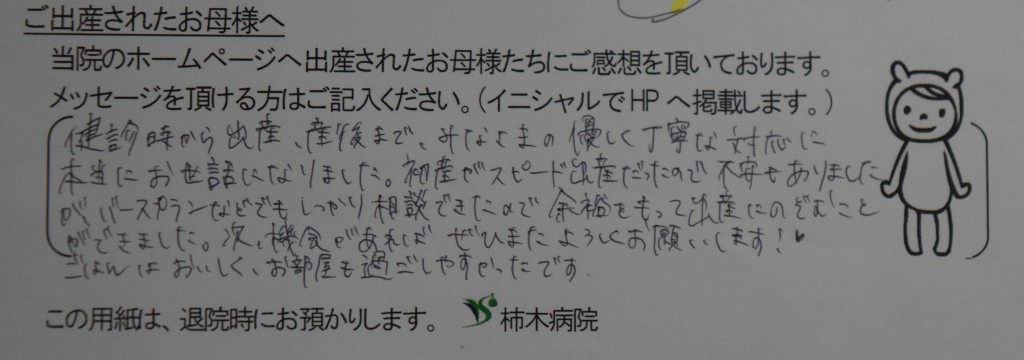 ご出産されたお母様へ
当院のホームページへ出産されたお母様たちにご感想を頂いております。
メッセージを頂ける方はご記入ください。（イニシャルでHPへ掲載します。）
健診時から出産、産後まで、みなさまの優しく丁寧な対応に
本当にお世話になりました。初産がスピード出産だったので不安もありました
が、バースプランなどでもしっかり相談できたので余裕をもって出産にのぞむこと
ができました。次、機会があればぜひまたよろしくお願いします！♥
ごはんはおいしく、お部屋も過ごしやすかったです.
この用紙は、退院時にお預かりします。 柿木病院